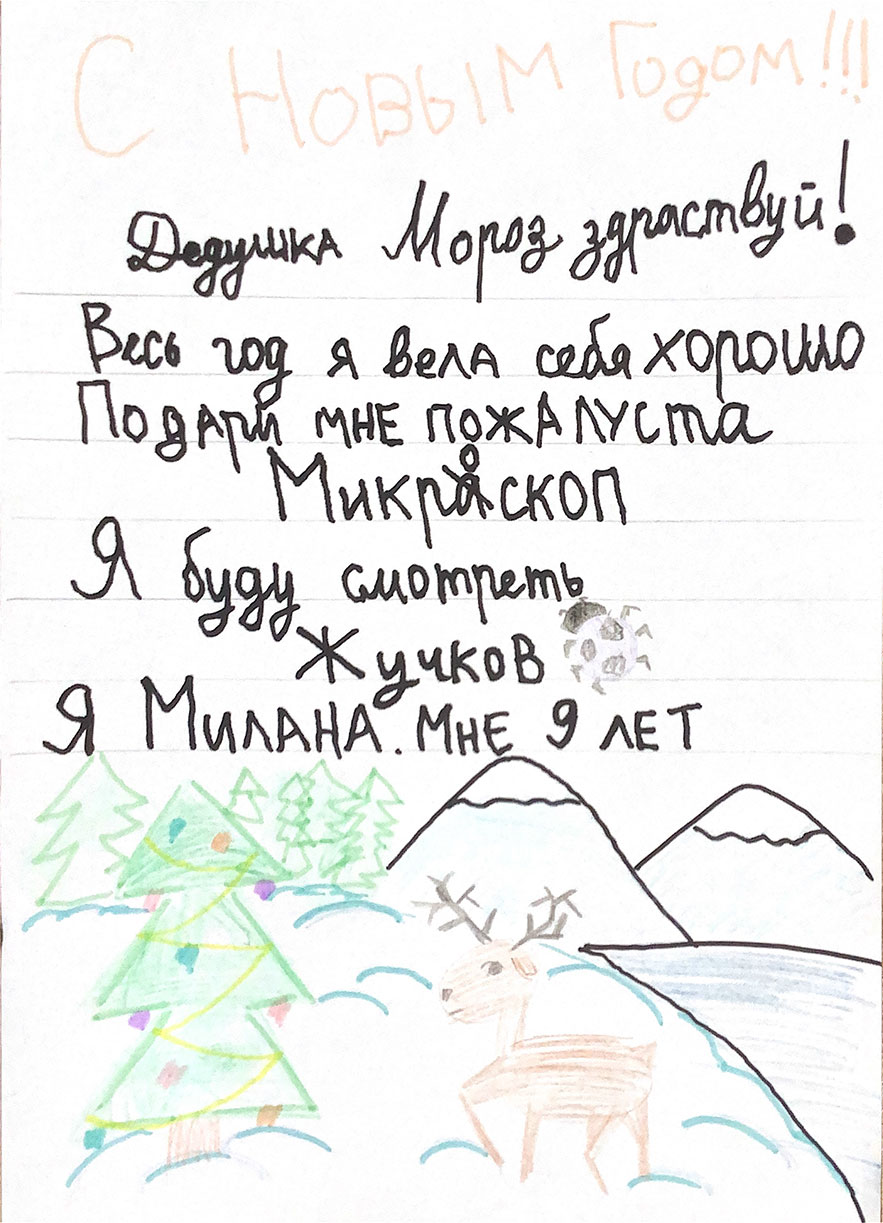 С Новым Годом!!!
Дедушка Мороз здраствуй!
Весь год я вела себя хорошо
Подари мне пожалуста
Микроскоп
Я буду смотреть
Жучков
Я Милана. Мне 9 лет